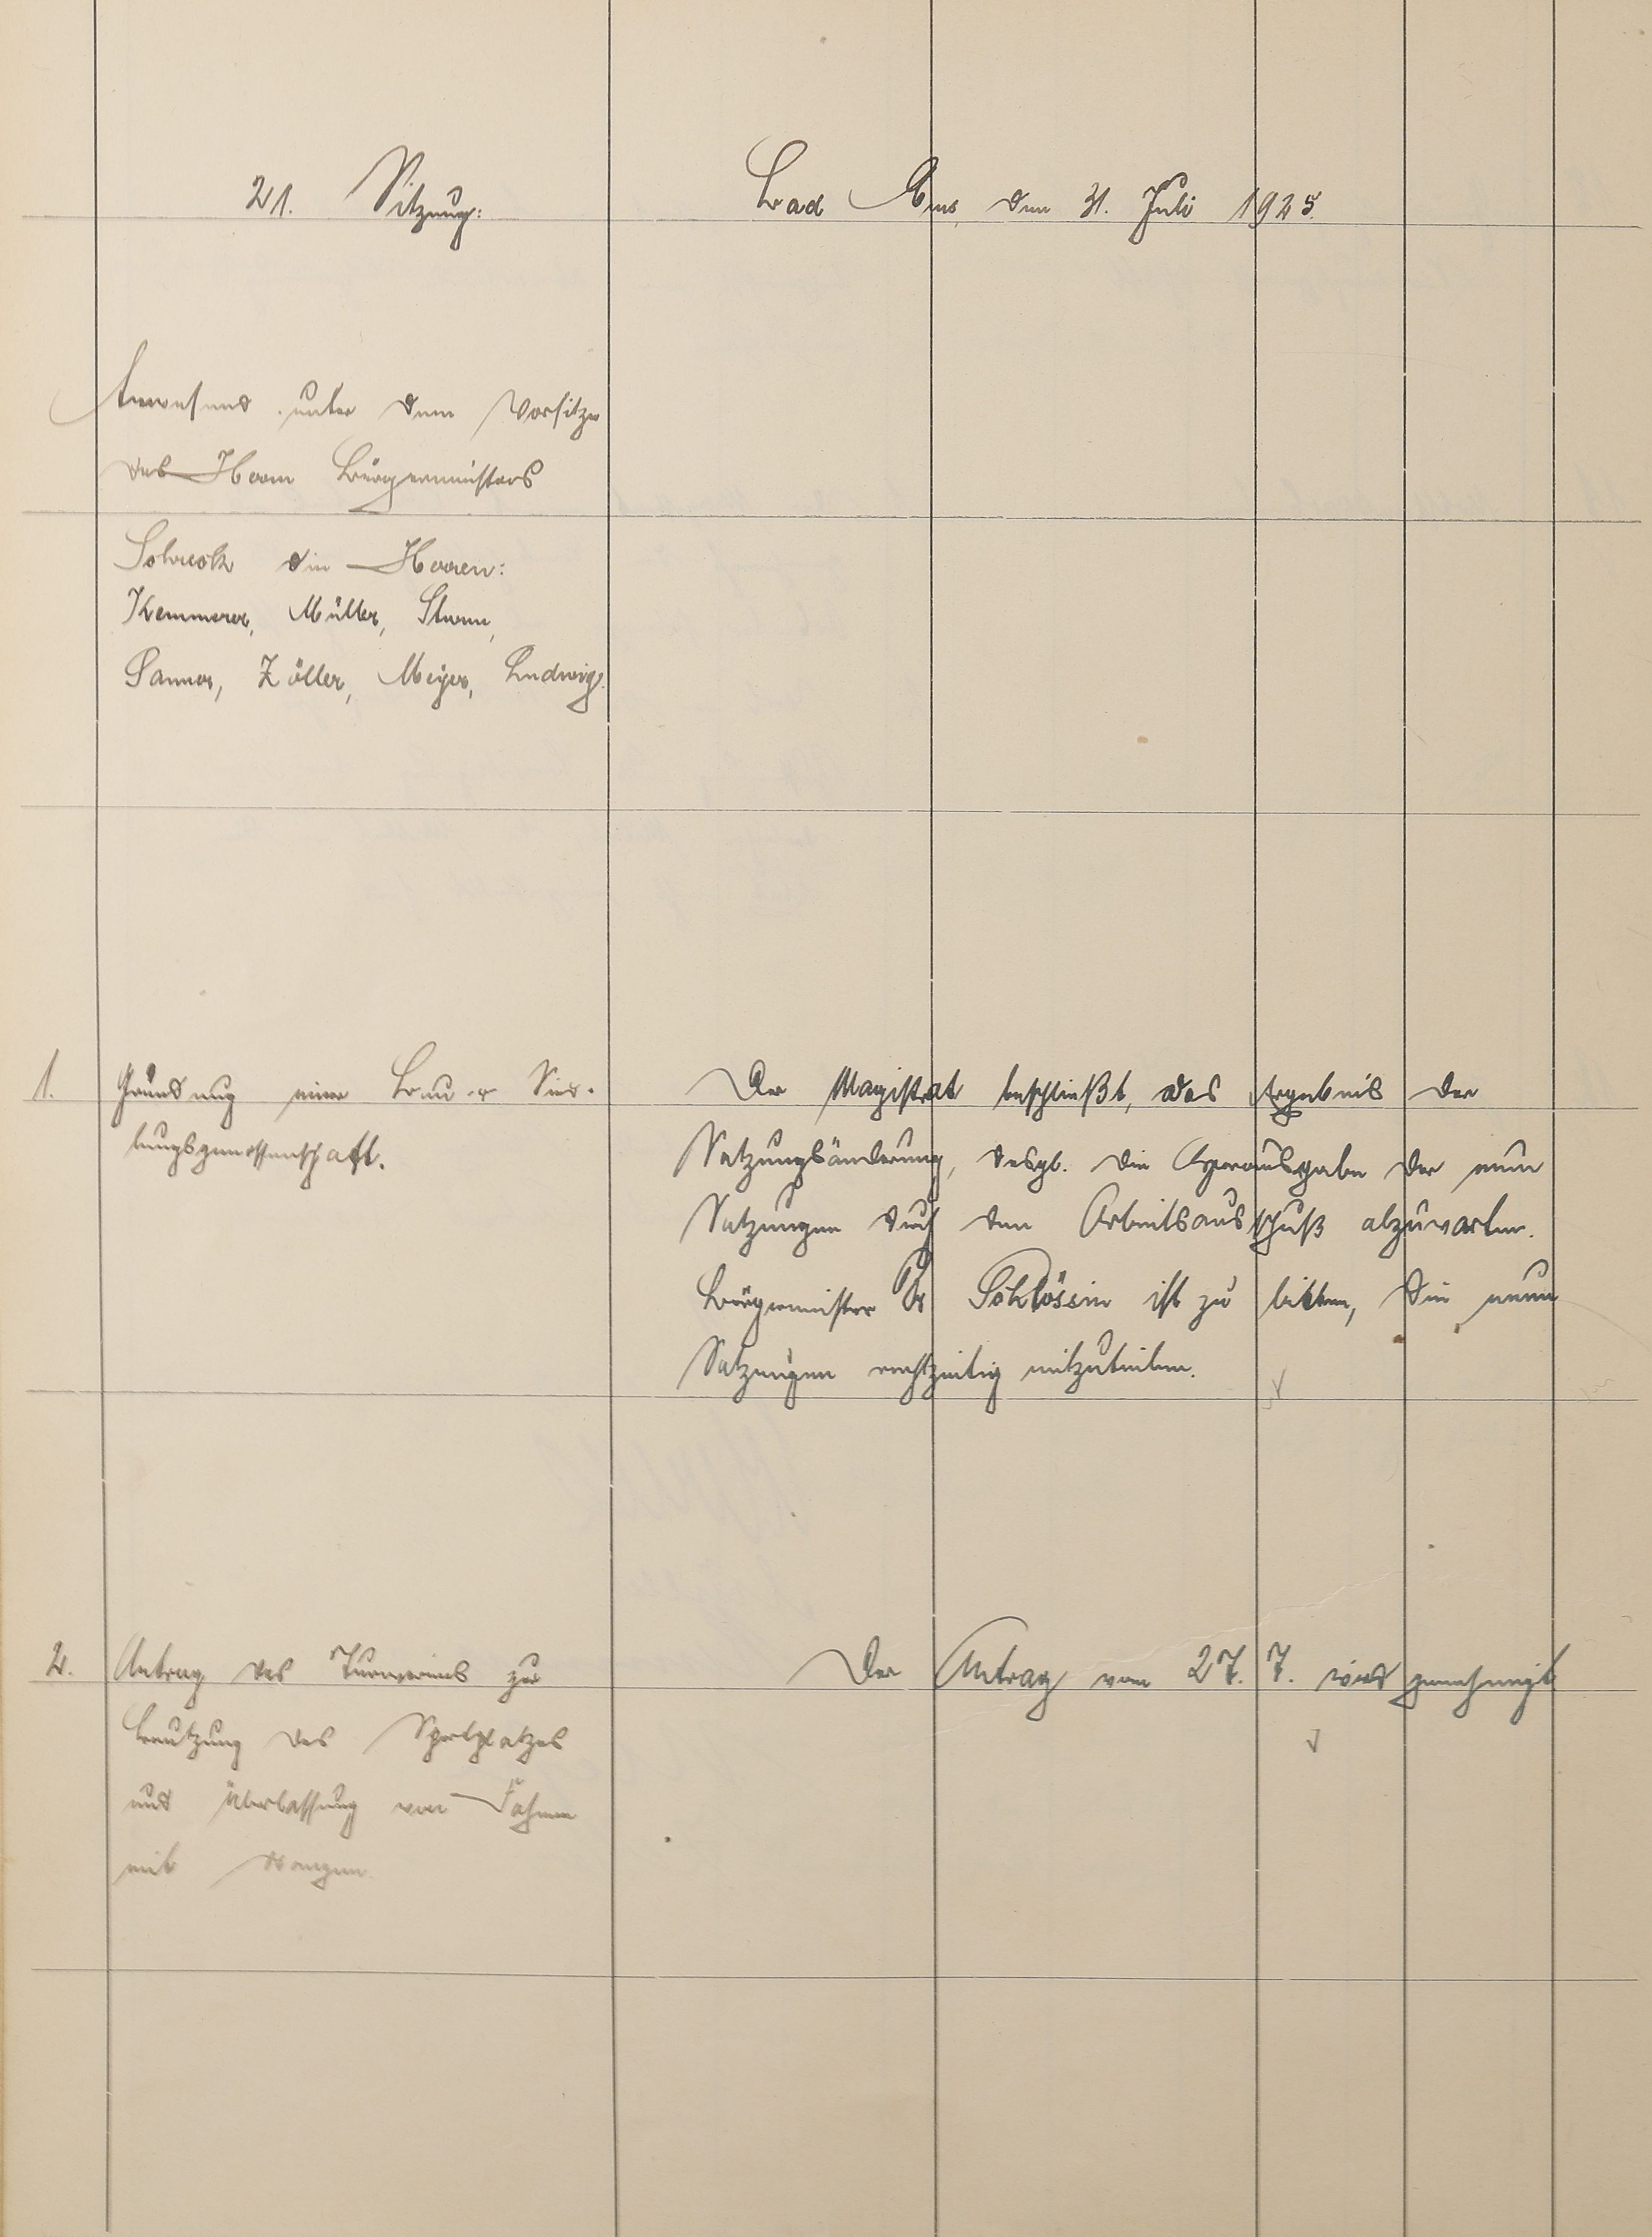 21. Sitzung:
Bad Ems, den 31. Juli 1925.
Anwesend unter dem Vorsitze
des Herrn Bürgermeisters
Schreck die Herren:
Kemmerer, Müller, Sturm,
Sanner, Zöller, Meyer, Ludwig.
1. Gründung einer Bau- u. Sied-
lungsgenossenschaft.
Der Magistrat beschließt, das Ergebnis der
Satzungsänderung, desgl. die Herausgabe der neuen
Satzungen durch den Arbeitsausschuß abzuwarten.
Bürgermeister Dr Schlössin ist zu bitten, die neuen
Satzungen rechtzeitig mitzuteilen.
2. Antrag des Turnvereins zur
Benutzung des Sportplatzes
und Überlassung von Fahnen
mit Stangen.
Der Antrag vom 27. 7. wird genehmigt